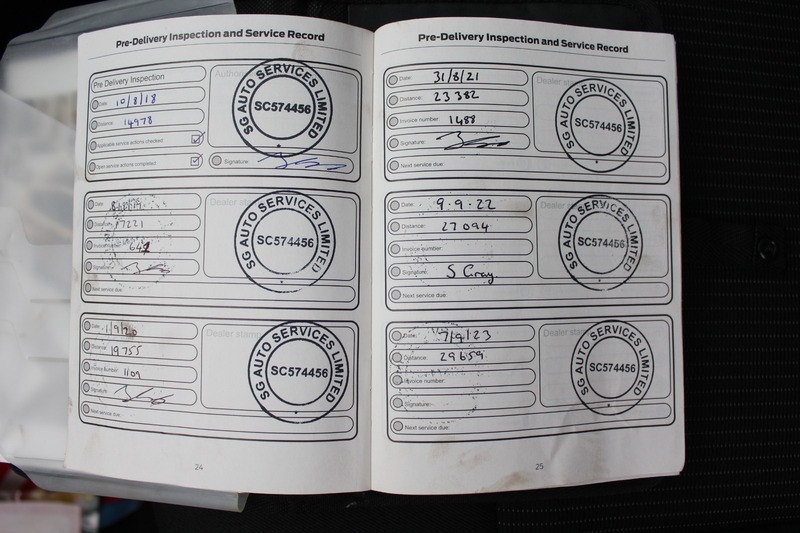 Pre-Delivery Inspection and Service Record
Pre Delivery Inspection
Date: 10/8/18
Distance: 14978
Applicable service actions checked:
Open service actions completed:
Signature:
SG AUTO SERVICES LIMITED
SC574456
Date:
Distance: 17221
Invoice number:
Signature:
Next service due:
SG AUTO SERVICES LIMITED
SC574456
Date: 1/9/20
Distance: 19755
Invoice Number: 1109
Signature:
Next service due:
Dealer stamp
SG AUTO SERVICES LIMITED
SC574456
24
Pre-Delivery Inspection and Service Record
Date: 31/8/21
Distance: 23382
Invoice number: 1488
Signature:
Next service due:
Dealer stamp
SG AUTO SERVICES LIMITED
SC574456
Date: 9.9.22
Distance: 27094
Invoice number:
Signature: S Gray
Next service due:
Dealer
SG AUTO SERVICES LIMITED
SC574456
Date: 7/9/23
Distance: 29659
Invoice number:
Signature:
Next service due:
Dealer stamp
SG AUTO SERVICES LIMITED
SC574456
25